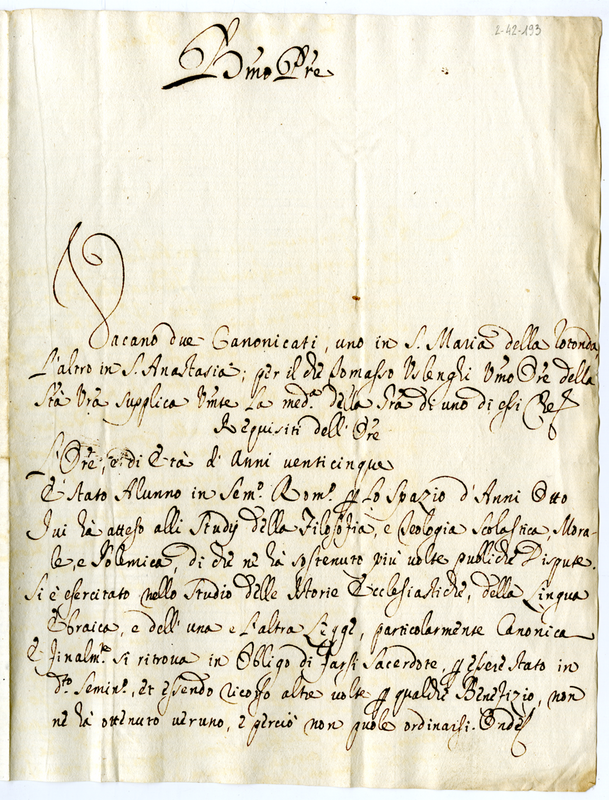 2-42-193
Bmo Pre
Vacano due Canonicati, uno in S. Maria della Rotonda
L'altro in S. Anastasia; per il che Tomasso Uslenghi Umo Ore della
Stà Vrà supplica Umte la medma. della Grà di uno di essi
Requisiti dell' Ore
L'Ore, è di Età d' Anni venticinque
È Stato Alunno in Semo. Romo. p Lo Spazio d'Anni Otto
Ivi hà atteso alli Studij della Filosofia, e Teologia Scolastica, Mora-
le, e Polemica, di che ne hà sostenuto più volte publiche Dispute.
Si è esercitato nello Studio delle Istorie Ecclesiastiche, della Lingua
Ebraica, e dell' una e L'altra Legge, particolarmente Canonica
E Finalmte. si ritrova in Obligo di farsi Sacerdote, p essere stato in
dto. Semino., et essendo ricorso altre volte p qualche Benefizio, non
ne hà ottenuto veruno, e perciò non puole ordinarsi. Onde